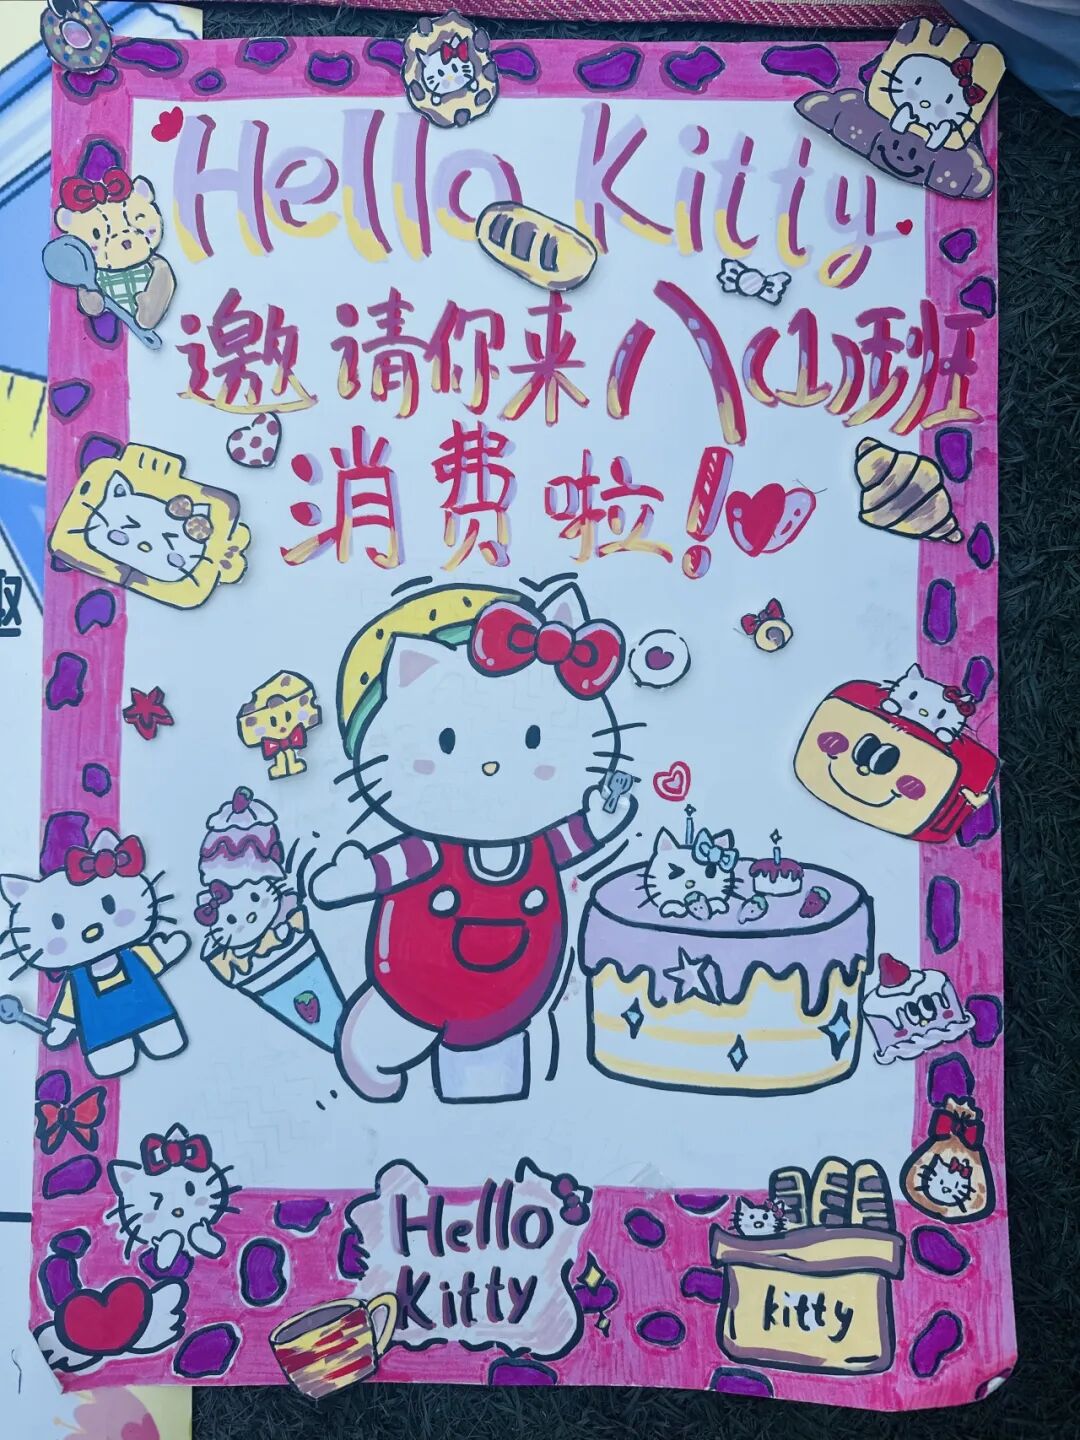 Hello Kitty
邀请你来八(1)班
消费啦!
Hello
Kitty
kitty